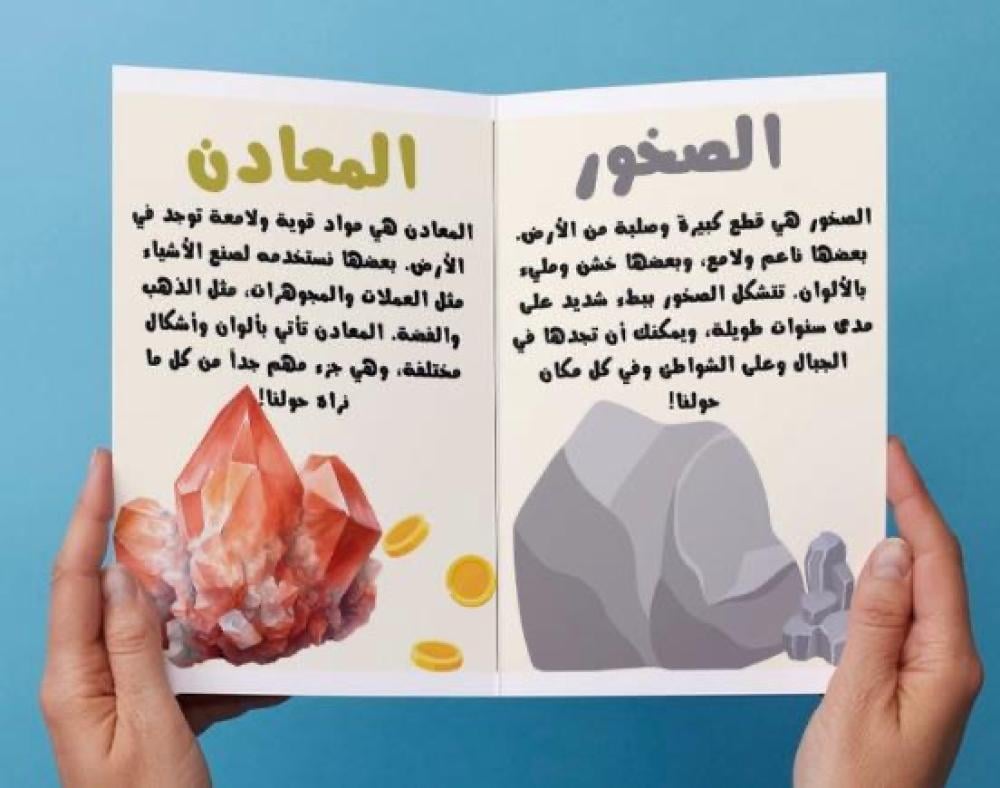 الصخور
الصخور هي قطع كبيرة وصلبة من الأرض.
بعضها ناعم ولامع، وبعضها خشن ومليء
بالألوان. تتشكل الصخور ببطء شديد على
مدى سنوات طويلة، ويمكنك أن تجدها في
الجبال وعلى الشواطئ وفي كل مكان
حولنا!
المعادن
المعادن هي مواد قوية ولامعة توجد في
الأرض. بعضها نستخدمه لصنع الأشياء
مثل العملات والمجوهرات، مثل الذهب
والفضة. المعادن تأتي بألوان وأشكال
مختلفة، وهي جزء مهم جداً من كل ما
نراه حولنا!